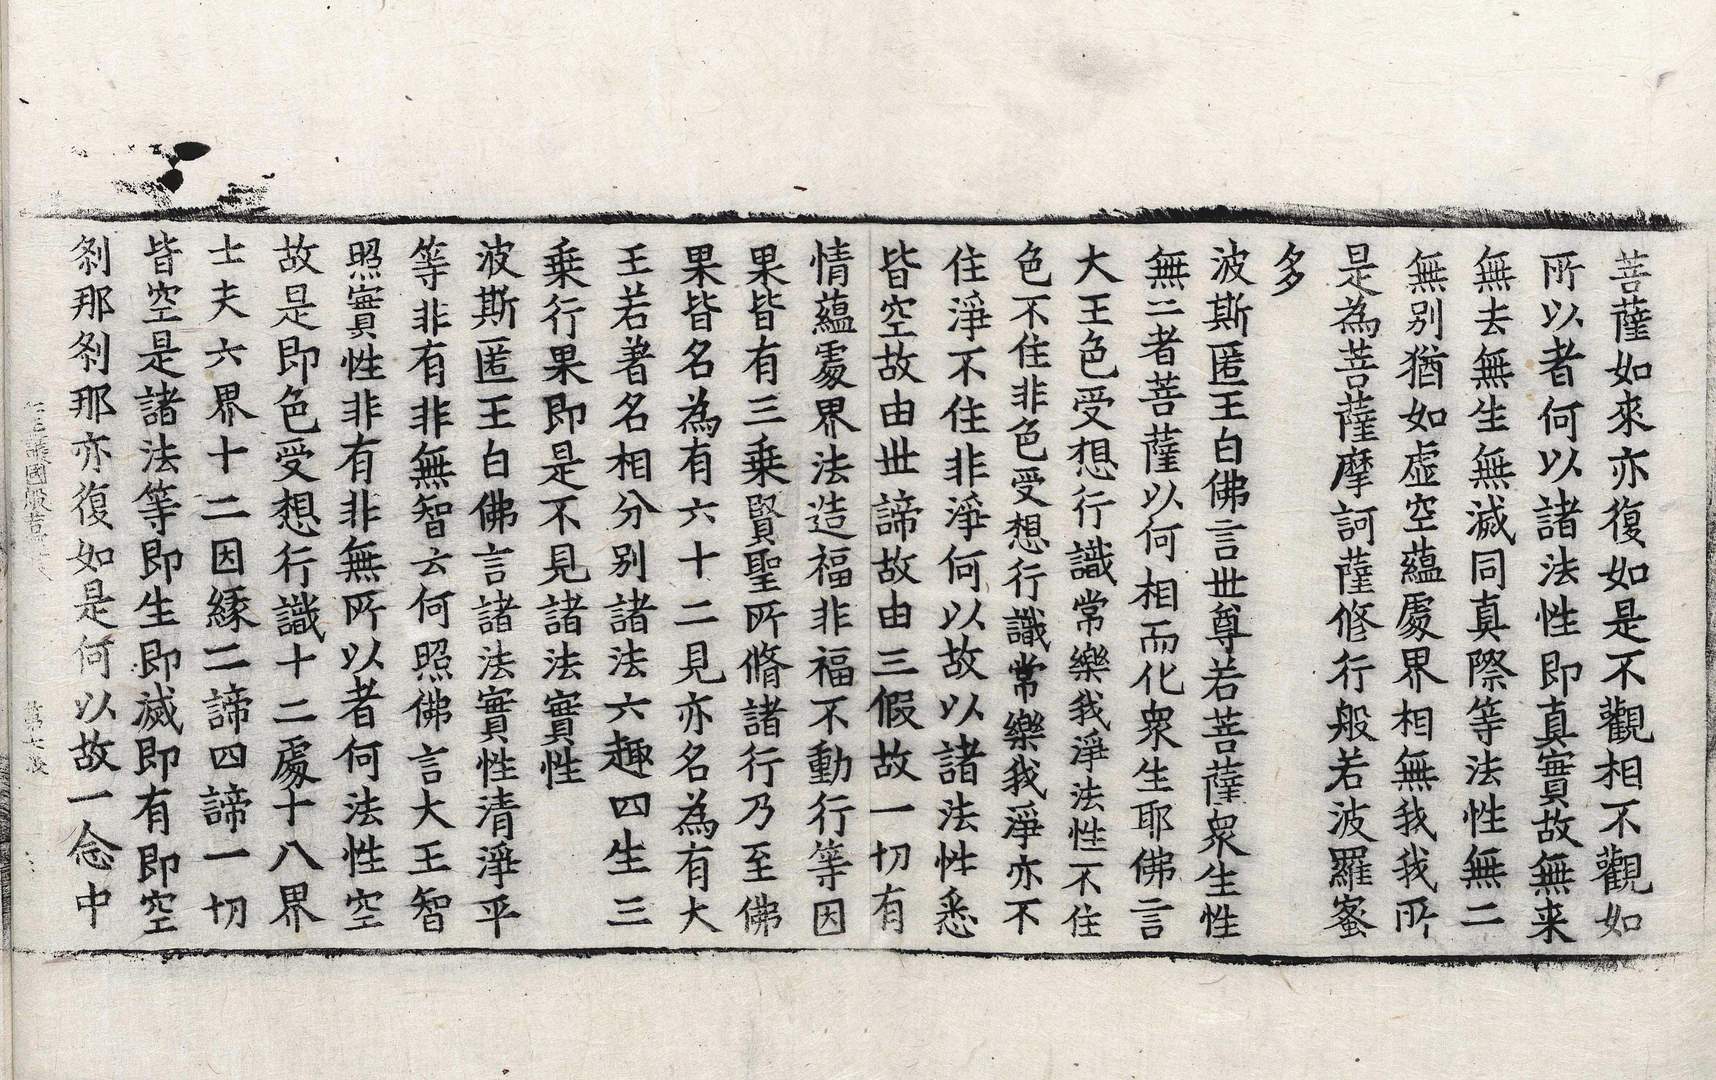 菩薩如來亦復如是不觀相不觀如
所以者何以諸法性即真實故無来
無去無生無滅同真際等法性無二
無别猶如虚空蘊處界相無我我所
是為菩薩摩訶薩修行般若波羅蜜
多
波斯匿王白佛言世尊若菩薩衆生性
無二者菩薩以何相而化衆生耶佛言
大王色受想行識常樂我淨法性不住
色不住非色受想行識常樂我淨亦不
住淨不住非淨何以故以諸法性悉
皆空故由世諦故由三假故一切有
情蘊處界法造福非福不動行等因
果皆有三乗賢聖所脩諸行乃至佛
果皆名為有六十二見亦名為有大
王若著名相分别諸法六趣四生三
乗行果即是不見諸法實性
波斯匿王白佛言諸法實性清淨平
等非有非無智云何照佛言大王智
照實性非有非無所以者何法性空
故是即色受想行識十二處十八界
士夫六界十二因緣二諦四諦一切
皆空是諸法等即生即滅即有即空
刹那刹那亦復如是何以故一念中